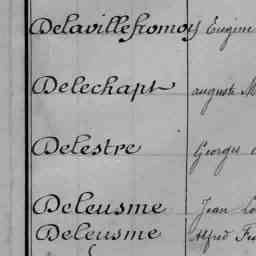 Delavillefromoy Eugène
Delechapt auguste M
Delestre Georges
Deleusme Jean Lo
Deleusme Alfred